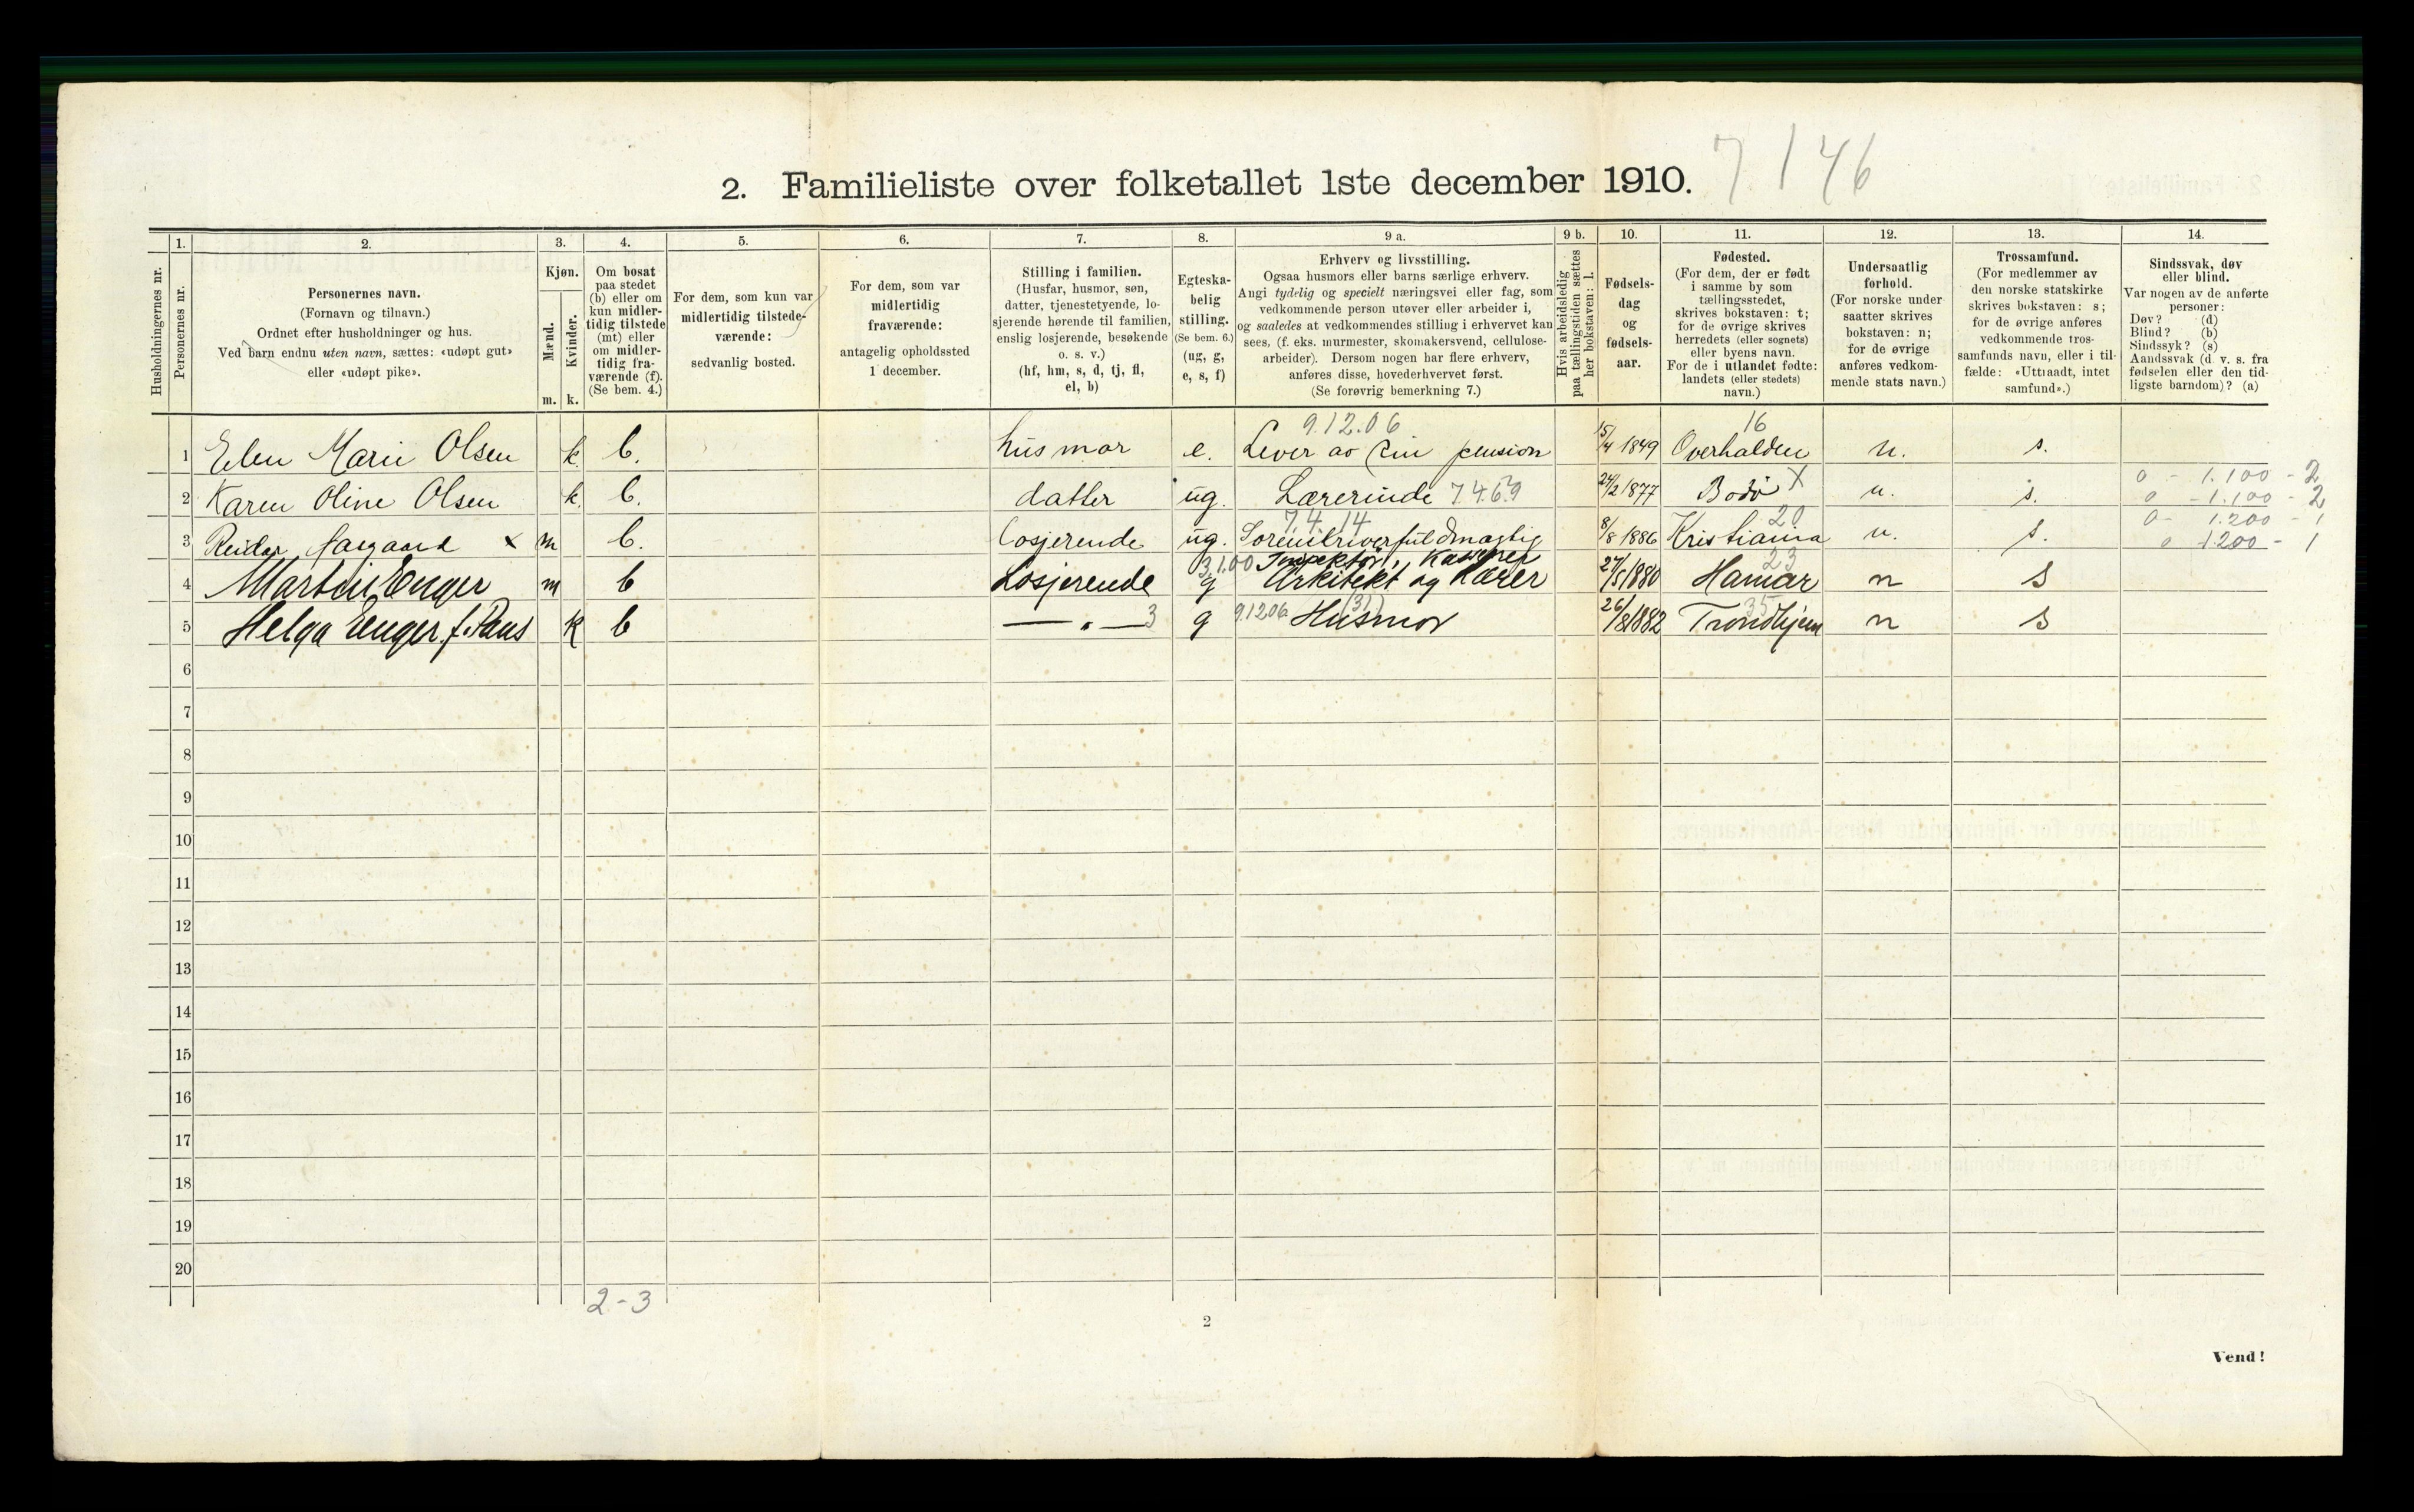 2. Familieliste over folketallet 1ste december 1910. 7.146
Husholdningernes nr.
1.
Personernes nr.
2.
Personernes navn.
(Fornavn og tilnavn.)
Ordnet efter husholdninger og hus.
Ved barn endnu uten navn, sættes: «udøpt gut»
eller «udøpt pike».
3.
Kjøn.
Mænd.
Kvinder.
m. k.
4.
Om bosat
paa stedet
(b) eller om
kun midler-
tidig tilstede
(mt) eller
om midler-
tidig fra-
værende (f).
(Se bem. 4.)
5.
For dem, som kun var
midlertidig tilstede-
værende:
sedvanlig bosted.
6.
For dem, som var
midlertidig
fraværende:
antagelig opholdssted
1 december.
7.
Stilling i familien.
(Husfar, husmor, søn,
datter, tjenestetyende, lo-
sjerende hørende til familien,
enslig losjerende, besøkende
o. s. v.)
(hf, hm, s, d, tj, fl,
el, b)
8.
Egteska-
belig
stilling.
(Se bem. 6.)
(ug, g,
e, s, f)
9 a.
Erhverv og livsstilling.
Ogsaa husmors eller barns særlige erhverv.
Angi tydelig og specielt næringsvei eller fag, som
vedkommende person utøver eller arbeider i,
og saaledes at vedkommendes stilling i erhvervet kan
sees, (f. eks. murmester, skomakersvend, cellulose-
arbeider). Dersom nogen har flere erhverv,
anføres disse, hovederhvervet først.
(Se forøvrig bemerkning 7.)
9 b.
Hvis arbeidsledig
paa tællingstiden sættes
her bokstaven: l.
10.
Fødsels-
dag
og
fødsels-
aar.
11.
Fødested.
(For dem, der er født
i samme by som
tællingsstedet,
skrives bokstaven: t;
for de øvrige skrives
herredets (eller sognets)
eller byens navn.
For de i utlandet fødte:
landets (eller stedets)
navn.)
12.
Undersaatlig
forhold.
(For norske under
saatter skrives
bokstaven: n;
for de øvrige
anføres vedkom-
mende stats navn.)
13.
Trossamfund.
(For medlemmer av
den norske statskirke
skrives bokstaven: s;
for de øvrige anføres
vedkommende tros-
samfunds navn, eller i til-
fælde: «Uttraadt, intet
samfund».)
14.
Sindssvak, døv
eller blind.
Var nogen av de anførte
personer:
Døv? (d)
Blind? (b)
Sindssyk? (s)
Aandssvak (d. v. s. fra
fødselen eller den tid-
ligste barndom)? (a)
9.12.06 16
1 Elen Marie Olsen k. b. husmor e. Lever av sin pension 15/4 1849 Overhalden n. s.
0 - 1.100 - 2
2 Karen Oline Olsen k. b. datter ug. Lærerinde 7.4.6.9 24/2 1877 Bodø X n. s. 0 - 1.100 - 2
7.4.14 20 0 - 1.200 - 1
3 Reidar Aasgaard x m b. losjerende ug. Sorenskriverfuldmægtig 8/8 1886 Kristiania n. s. 0 1200 - 1
3.1.00 Inspektør, Kasserer 23
4 Martin Enger m b Losjerende g Arkitekt og Lærer 27/5 1880 Hamar n s
5 Helga Enger f. Paus k b — " — 3 g 9.12.06 Husmor (31) 26/8 1882 Trondhjem 35 n s
6
7
8
9
10
11
12
13
14
15
16
17
18
19
20
2-3
2
Vend!